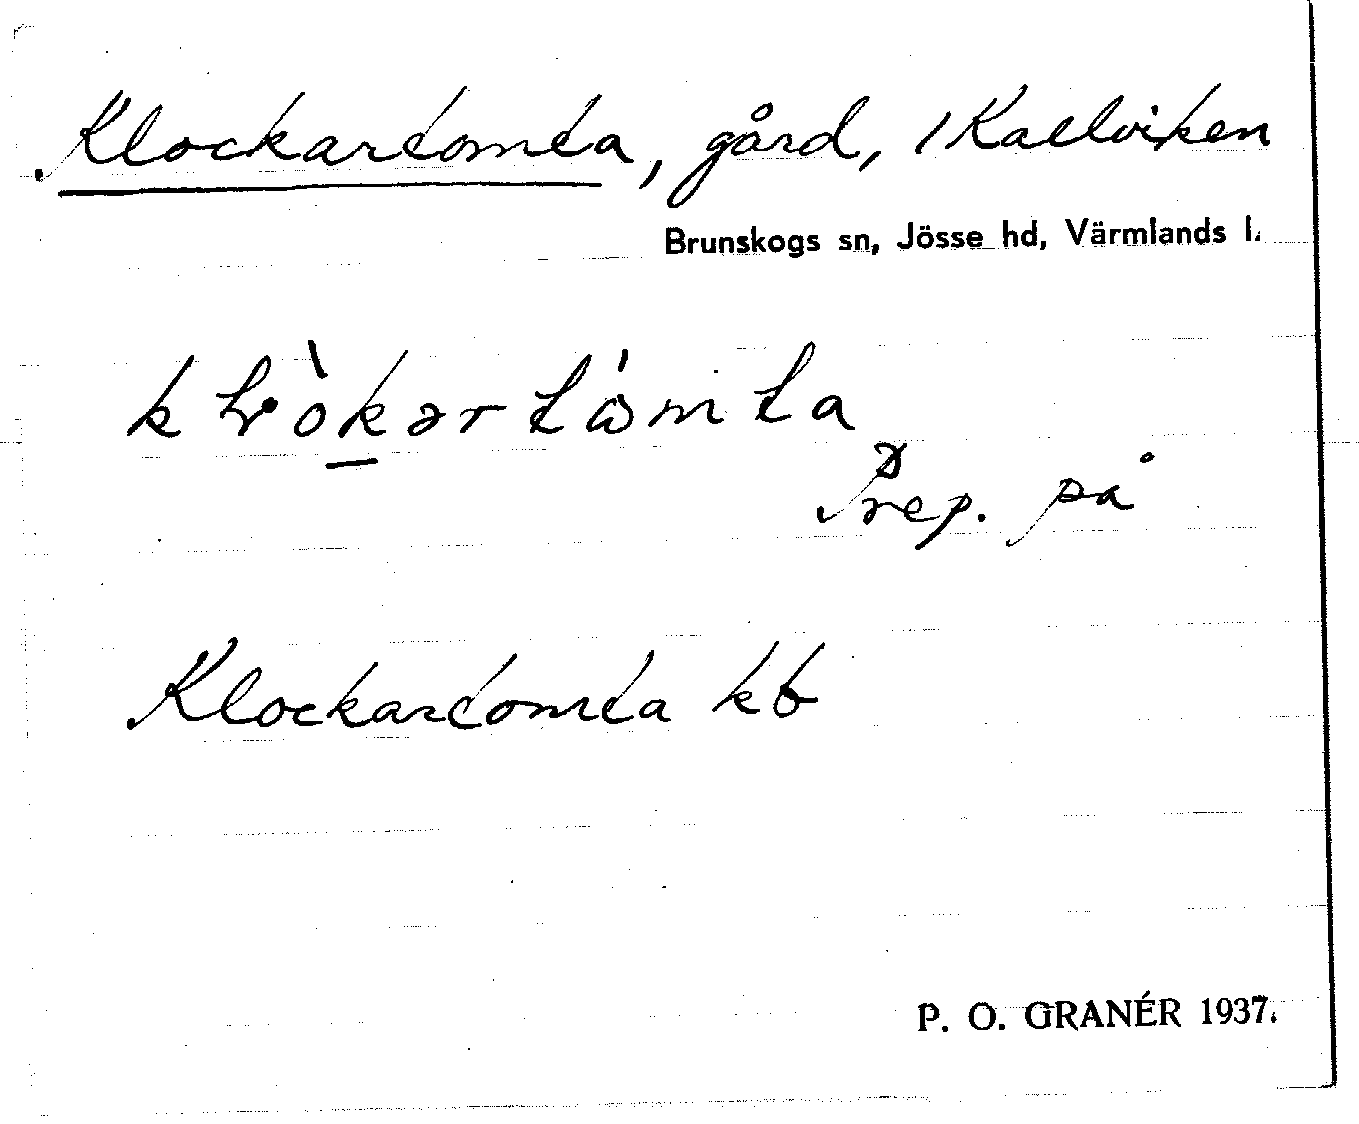 Klockartomta, gård, 1 Kallviken
Brunskogs sn, Jösse hd, Värmlands l.
Prep. på
Klockartomta kb
P. O. GRANÉR 1937.